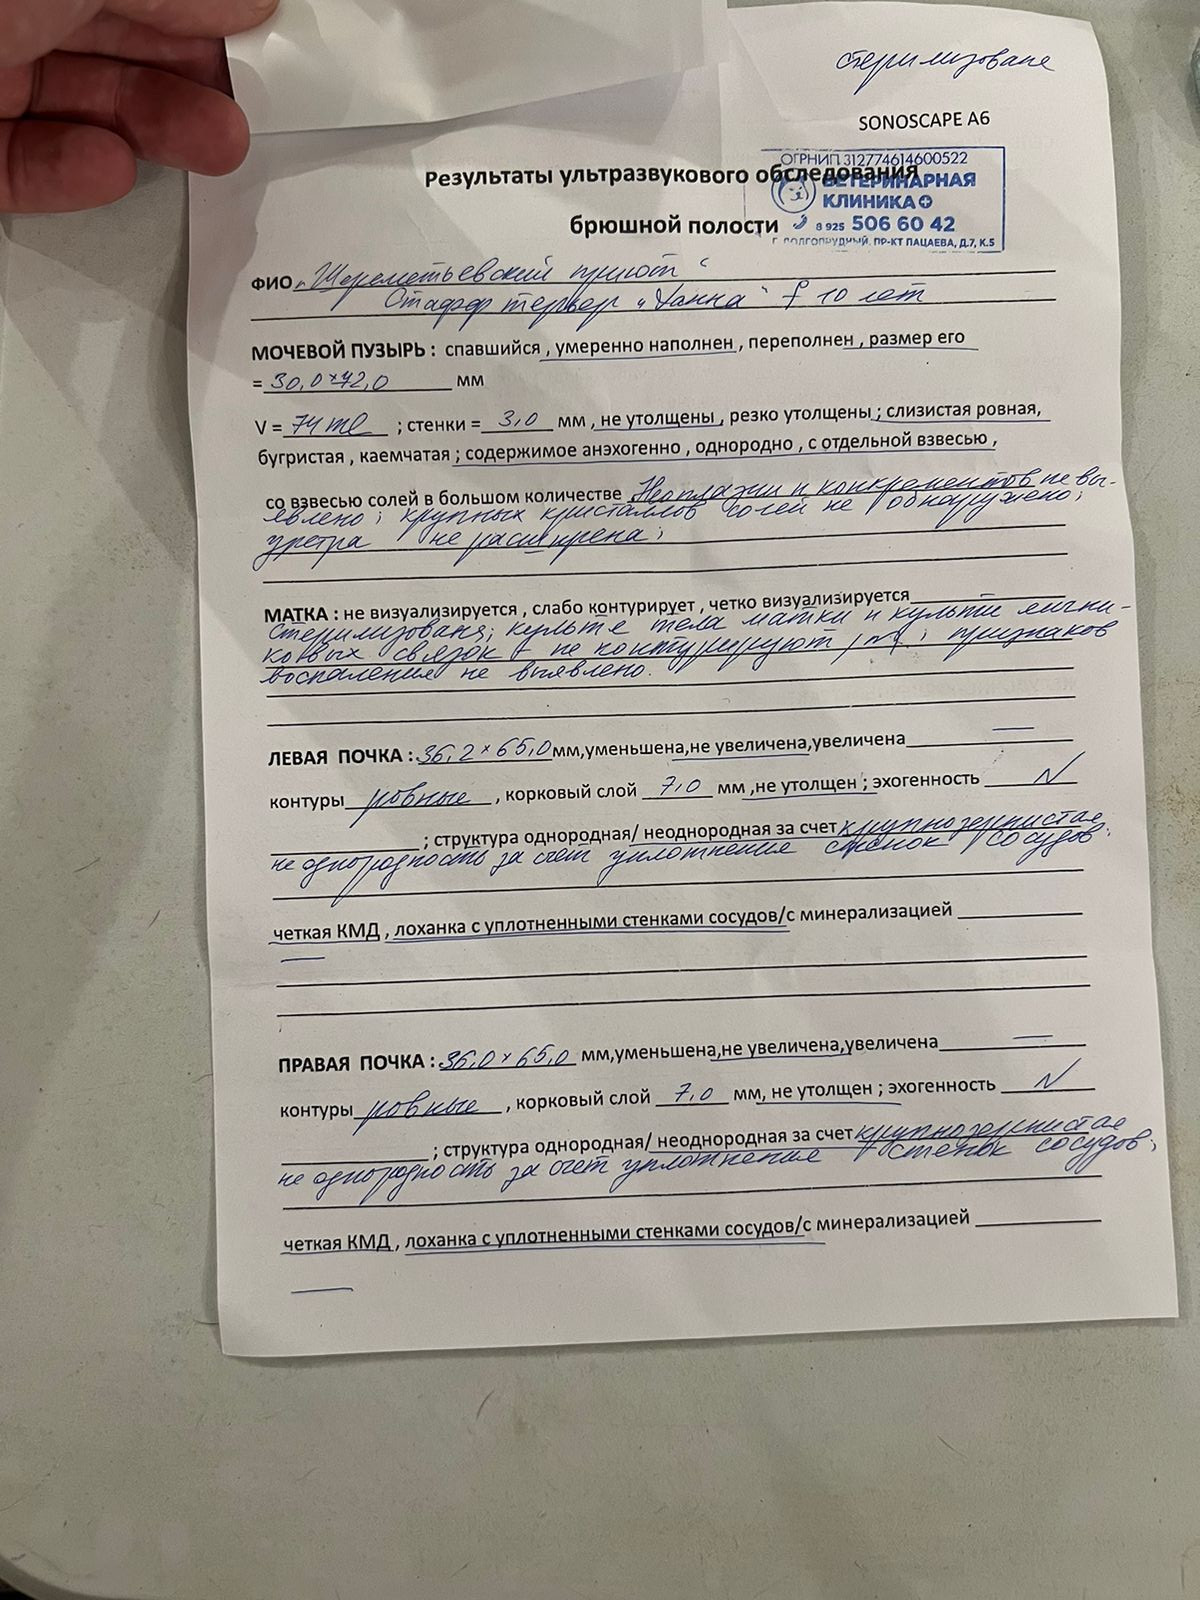 стерилизована
SONOSCAPE A6
ОГРНИП 312774614600522
Результаты ультразвукового обследования
ВЕТЕРИНАРНАЯ
КЛИНИКА
брюшной полости
8 925 506 60 42
Г. ДОЛГОПРУДНЫЙ, ПР-КТ ПАЦАЕВА, Д.7, К.5
ФИО „Шереметьевский приют“
Стафф терьер „Ханна“ f 10 лет
МОЧЕВОЙ ПУЗЫРЬ : спавшийся , умеренно наполнен , переполнен , размер его
= 30,0 × 72,0 мм
V = 74 ml ; стенки = 3,0 мм , не утолщены , резко утолщены ; слизистая ровная,
бугристая , каемчатая ; содержимое анэхогенно , однородно , с отдельной взвесью ,
со взвесью солей в большом количестве Неоплазии и конкрементов не вы-
явлено; крупных кристаллов солей не обнаружено;
уретра не расширена;
МАТКА : не визуализируется , слабо контурирует , четко визуализируется
стерилизована; культе тела матки и культи яични-
ковых связок – не контурируют ; признаков
воспаления не выявлено.
ЛЕВАЯ ПОЧКА : 36,2 × 65,0 мм,уменьшена,не увеличена,увеличена —
контуры ровные , корковый слой 7,0 мм ,не утолщен ; эхогенность N
; структура однородная/ неоднородная за счет крупнозернистая
не однородность за счет уплотнение стенок сосудов;
четкая КМД , лоханка с уплотненными стенками сосудов/с минерализацией
—
ПРАВАЯ ПОЧКА : 36,0 × 65,0 мм,уменьшена,не увеличена,увеличена —
контуры ровные , корковый слой 7,0 мм, не утолщен ; эхогенность N
; структура однородная/ неоднородная за счет крупнозернистая
не однородность за счет уплотнение стенок сосудов;
четкая КМД , лоханка с уплотненными стенками сосудов/с минерализацией
—